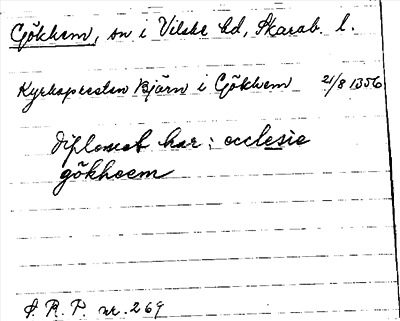 Gökhem, sn i Vilske hd, Skarab. l.
Kyrkoprästen Björn i Gökhem 21/8 1356
diplomet har: ecclesie
gökhoem
S. R. P. nr. 269